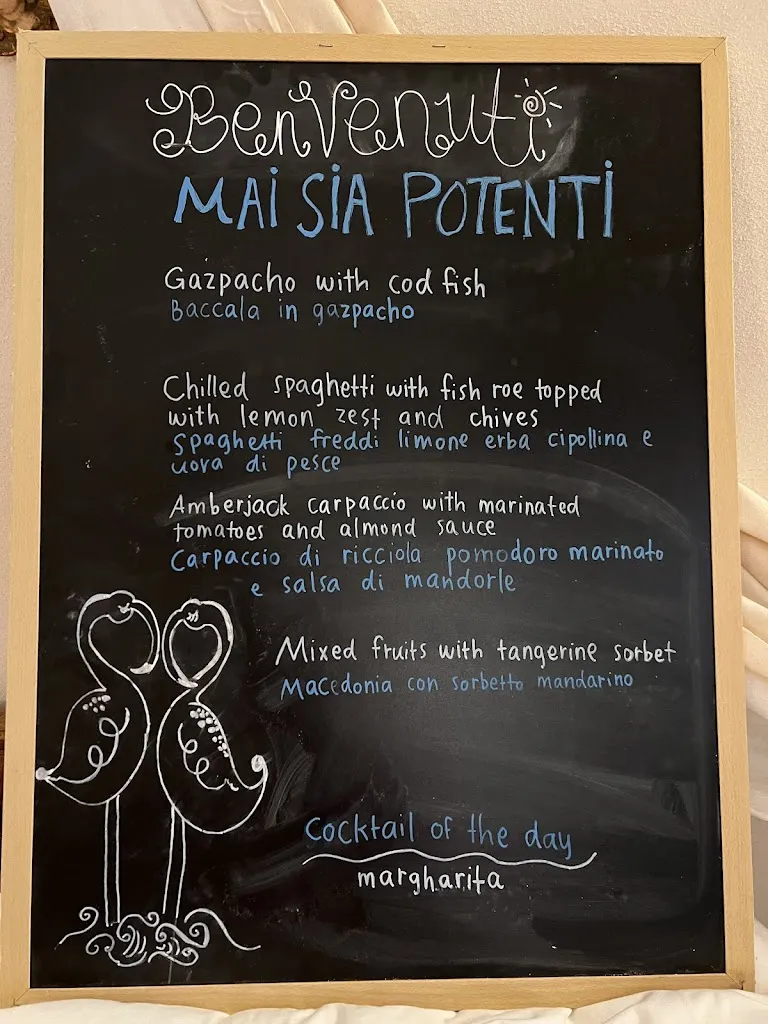 Benvenuti
MAI SIA POTENTI
Gazpacho with cod fish
Baccala in gazpacho
Chilled spaghetti with fish roe topped
with lemon zest and chives
Spaghetti freddi limone erba cipollina e
uova di pesce
Amberjack carpaccio with marinated
tomatoes and almond sauce
Carpaccio di ricciola pomodoro marinato
e salsa di mandorle
Mixed fruits with tangerine sorbet
Macedonia con sorbetto mandarino
Cocktail of the day
margharita